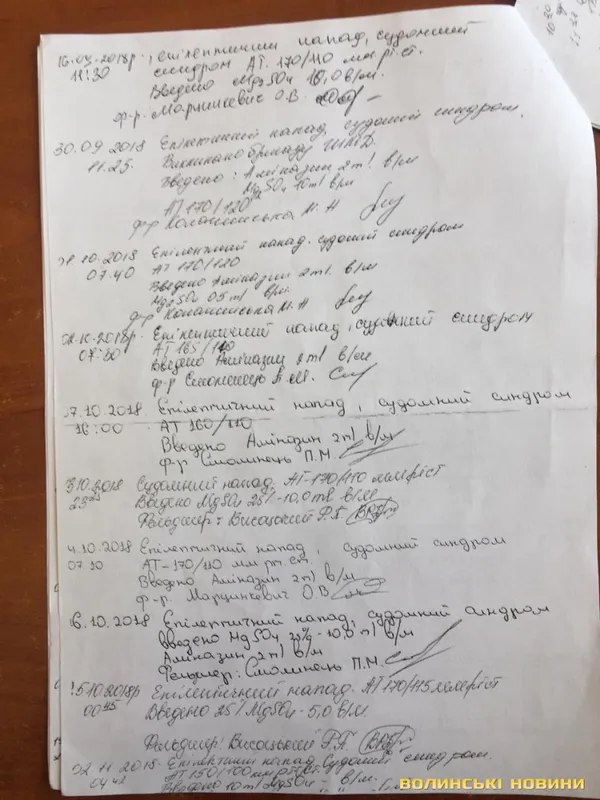 16.09.2018р. Епілептичний напад, судомний
11:30 синдром АТ 170/110 мм.рт.ст.
Введено MgSO4 10,0 в/м.
Ф-р. Марцинкевич О.В.
30.09.2018 Епілептичний напад, судомний синдром.
11.25. Викликано бригаду
Введено: Аміназин 2ml в/м
MgSO4 10ml в/м
АТ 170/120
ф-р М.Н
10.2018 Епілептичний напад. судомний синдром
07.40 АТ 170/120
Введено Аміназин 2ml в/м
MgSO4 05ml в/м.
ф-р М.Н
10.2018р. Епілептичний напад, судомний синдром
АТ 165/110
Введено Аміназин 2ml в/м
ф-р Смолинець П.М.
7.10.2018. Епілептичний напад, судомний синдром
16:00 АТ 160/110
Введено Аміназин 2ml в/м
Ф-р Смолинець П.М.
10.2018 Судомний напад. АТ-170/110 мм
23 Введено MgSO4 25%-10,0 в/м
Фельдшер: Висоцький Р.
4.10.2018 Епілептичний напад, судомний синдром
07.10 АТ-170/110 мм рт. ст.
Введено Аміназин 2ml в/м
Ф-р. Марцинкевич О В
6.10.2018 Епілептичний напад, судомний синдром
Введено MgSO4 25%-10,0 ml в/м
Аміназин 2ml в/м
Фельдшер: Смолинець П.М.
5.10.2018р Епілептичний напад. АТ 170/115
00 45 Введено 25% MgSO4-5,0 в/м.
Фельдшер: Висоцький Р.
02.11.2018. Епілептичний напад Судомний синдром.
04 42 АТ 150/100 мм рт ст.
Введено 10ml MgSO4 в/м.
ВОЛИНСЬКІ НОВИНИ